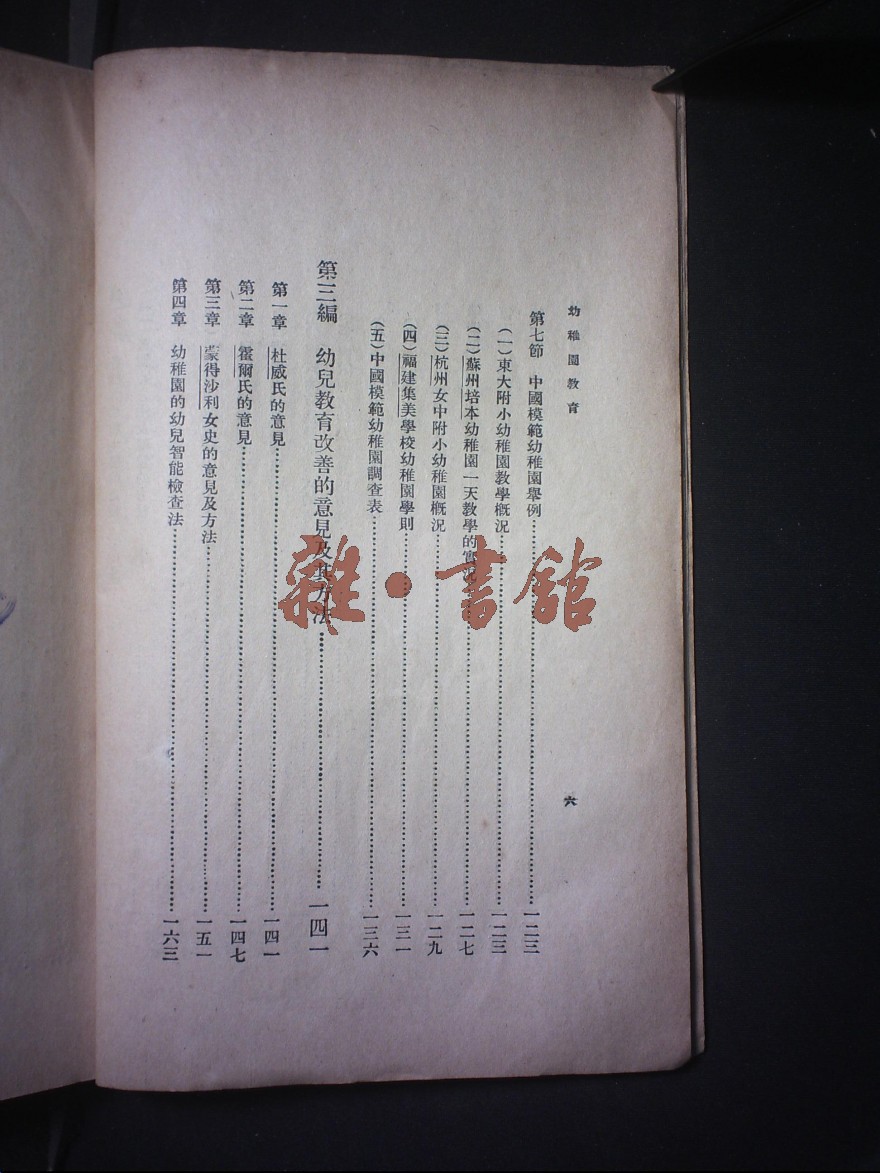 幼稚園教育
六
第七節 中國模範幼稚園舉例……一二三
(一)東大附小幼稚園教學概況……一二三
(二)蘇州培本幼稚園一天教學的實況……一二七
(三)杭州女中附小幼稚園概況……一二九
(四)福建集美學校幼稚園學則……一三一
(五)中國模範幼稚園調查表……一三六
第三編 幼兒教育改善的意見及其方法……一四一
第一章 杜威氏的意見……一四一
第二章 霍爾氏的意見……一四七
第三章 蒙得沙利女史的意見及方法……一五一
第四章 幼稚園的幼兒智能檢查法……一六三
雜·書館